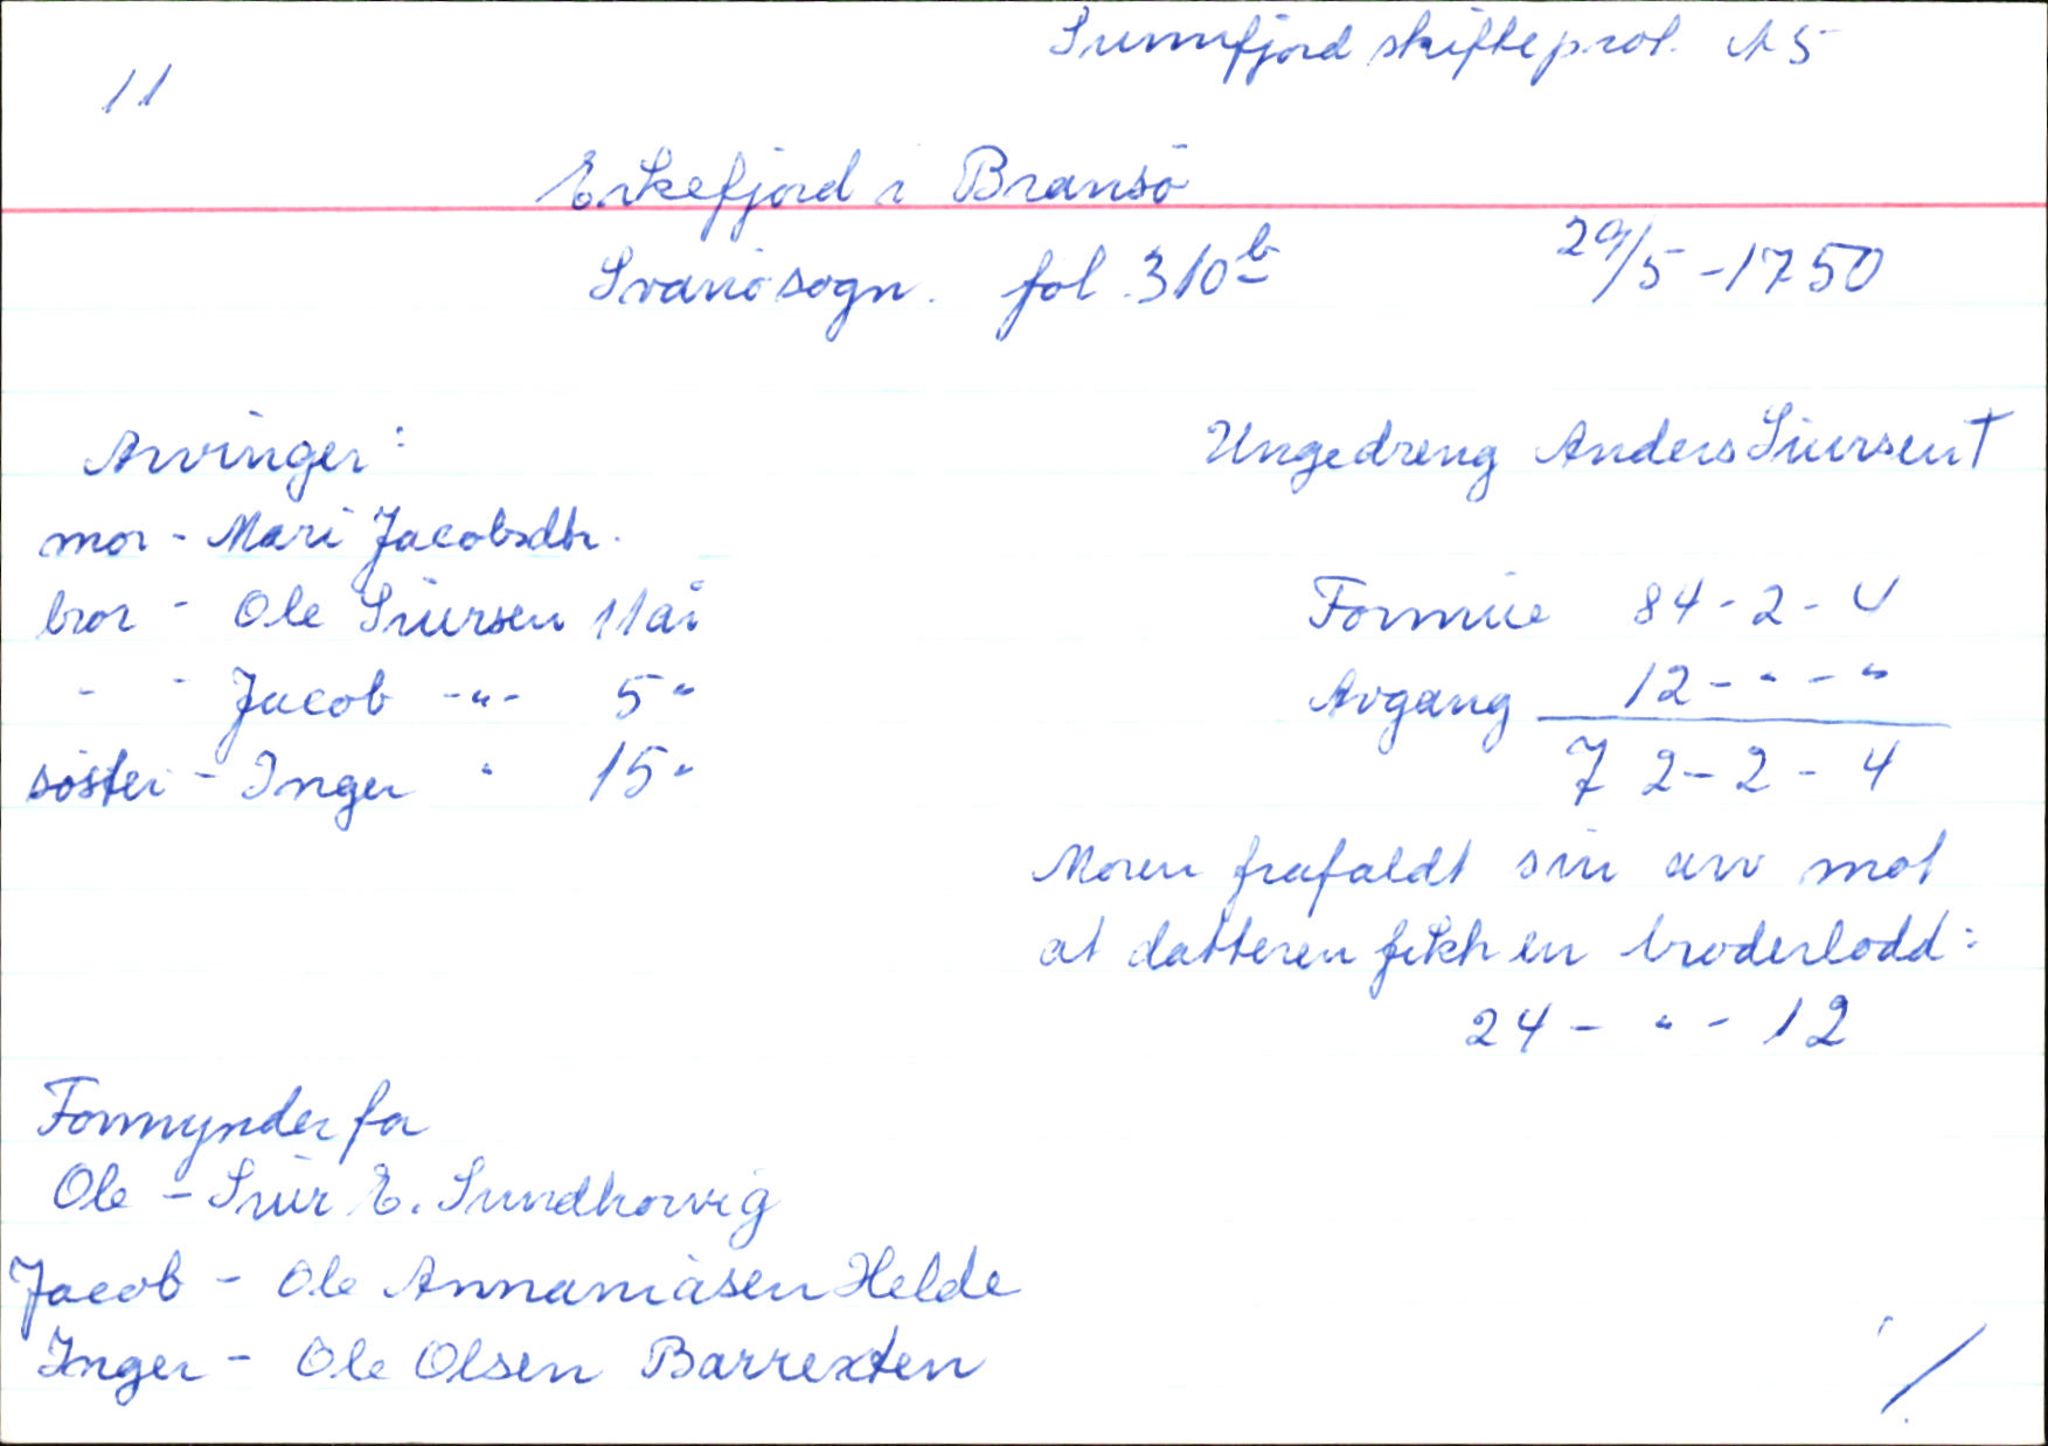 Sunnfjord skifteprot. A 5
11
Erkefjord i Bransö
Svanösogn. fol. 310b 29/5-1750
Arvinger: Ungedreng Anders Siursen †
mor - Mari Jacobsdtr.
bror - Ole Siursen 11 år Formue 84-2-4
- - Jacob -"- 5 " Avgang 12-"-"
söster - Inger " 15 " 72-2-4
Moren frafaldt sin arv mot
at datteren fikk en broderlodd:
24-"-12
Formynder for
Ole - Siur E. Sundhovvig
Jacob - Ole Annaniasen Helde
Inger - Ole Olsen Barrexten
./.